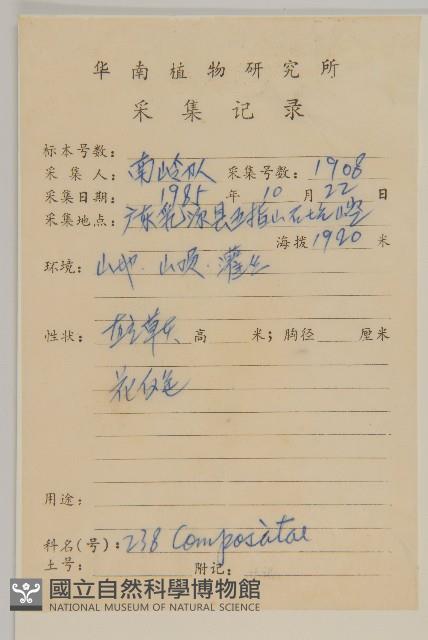 华南植物研究所
采集记录
标本号数:
采集人: 南岭队 采集号数: 1908
采集日期: 1985 年 10 月 22 日
采集地点: 广东乳源县五指山石坑崆
海拔 1920 米
环境: 山地. 山顶. 灌丛
性状: 直立草本 高 米; 胸径 厘米
花
用途:
科名(号): 238 Compositae
土号: 附记:
國立自然科學博物館
NATIONAL MUSEUM OF NATURAL SCIENCE